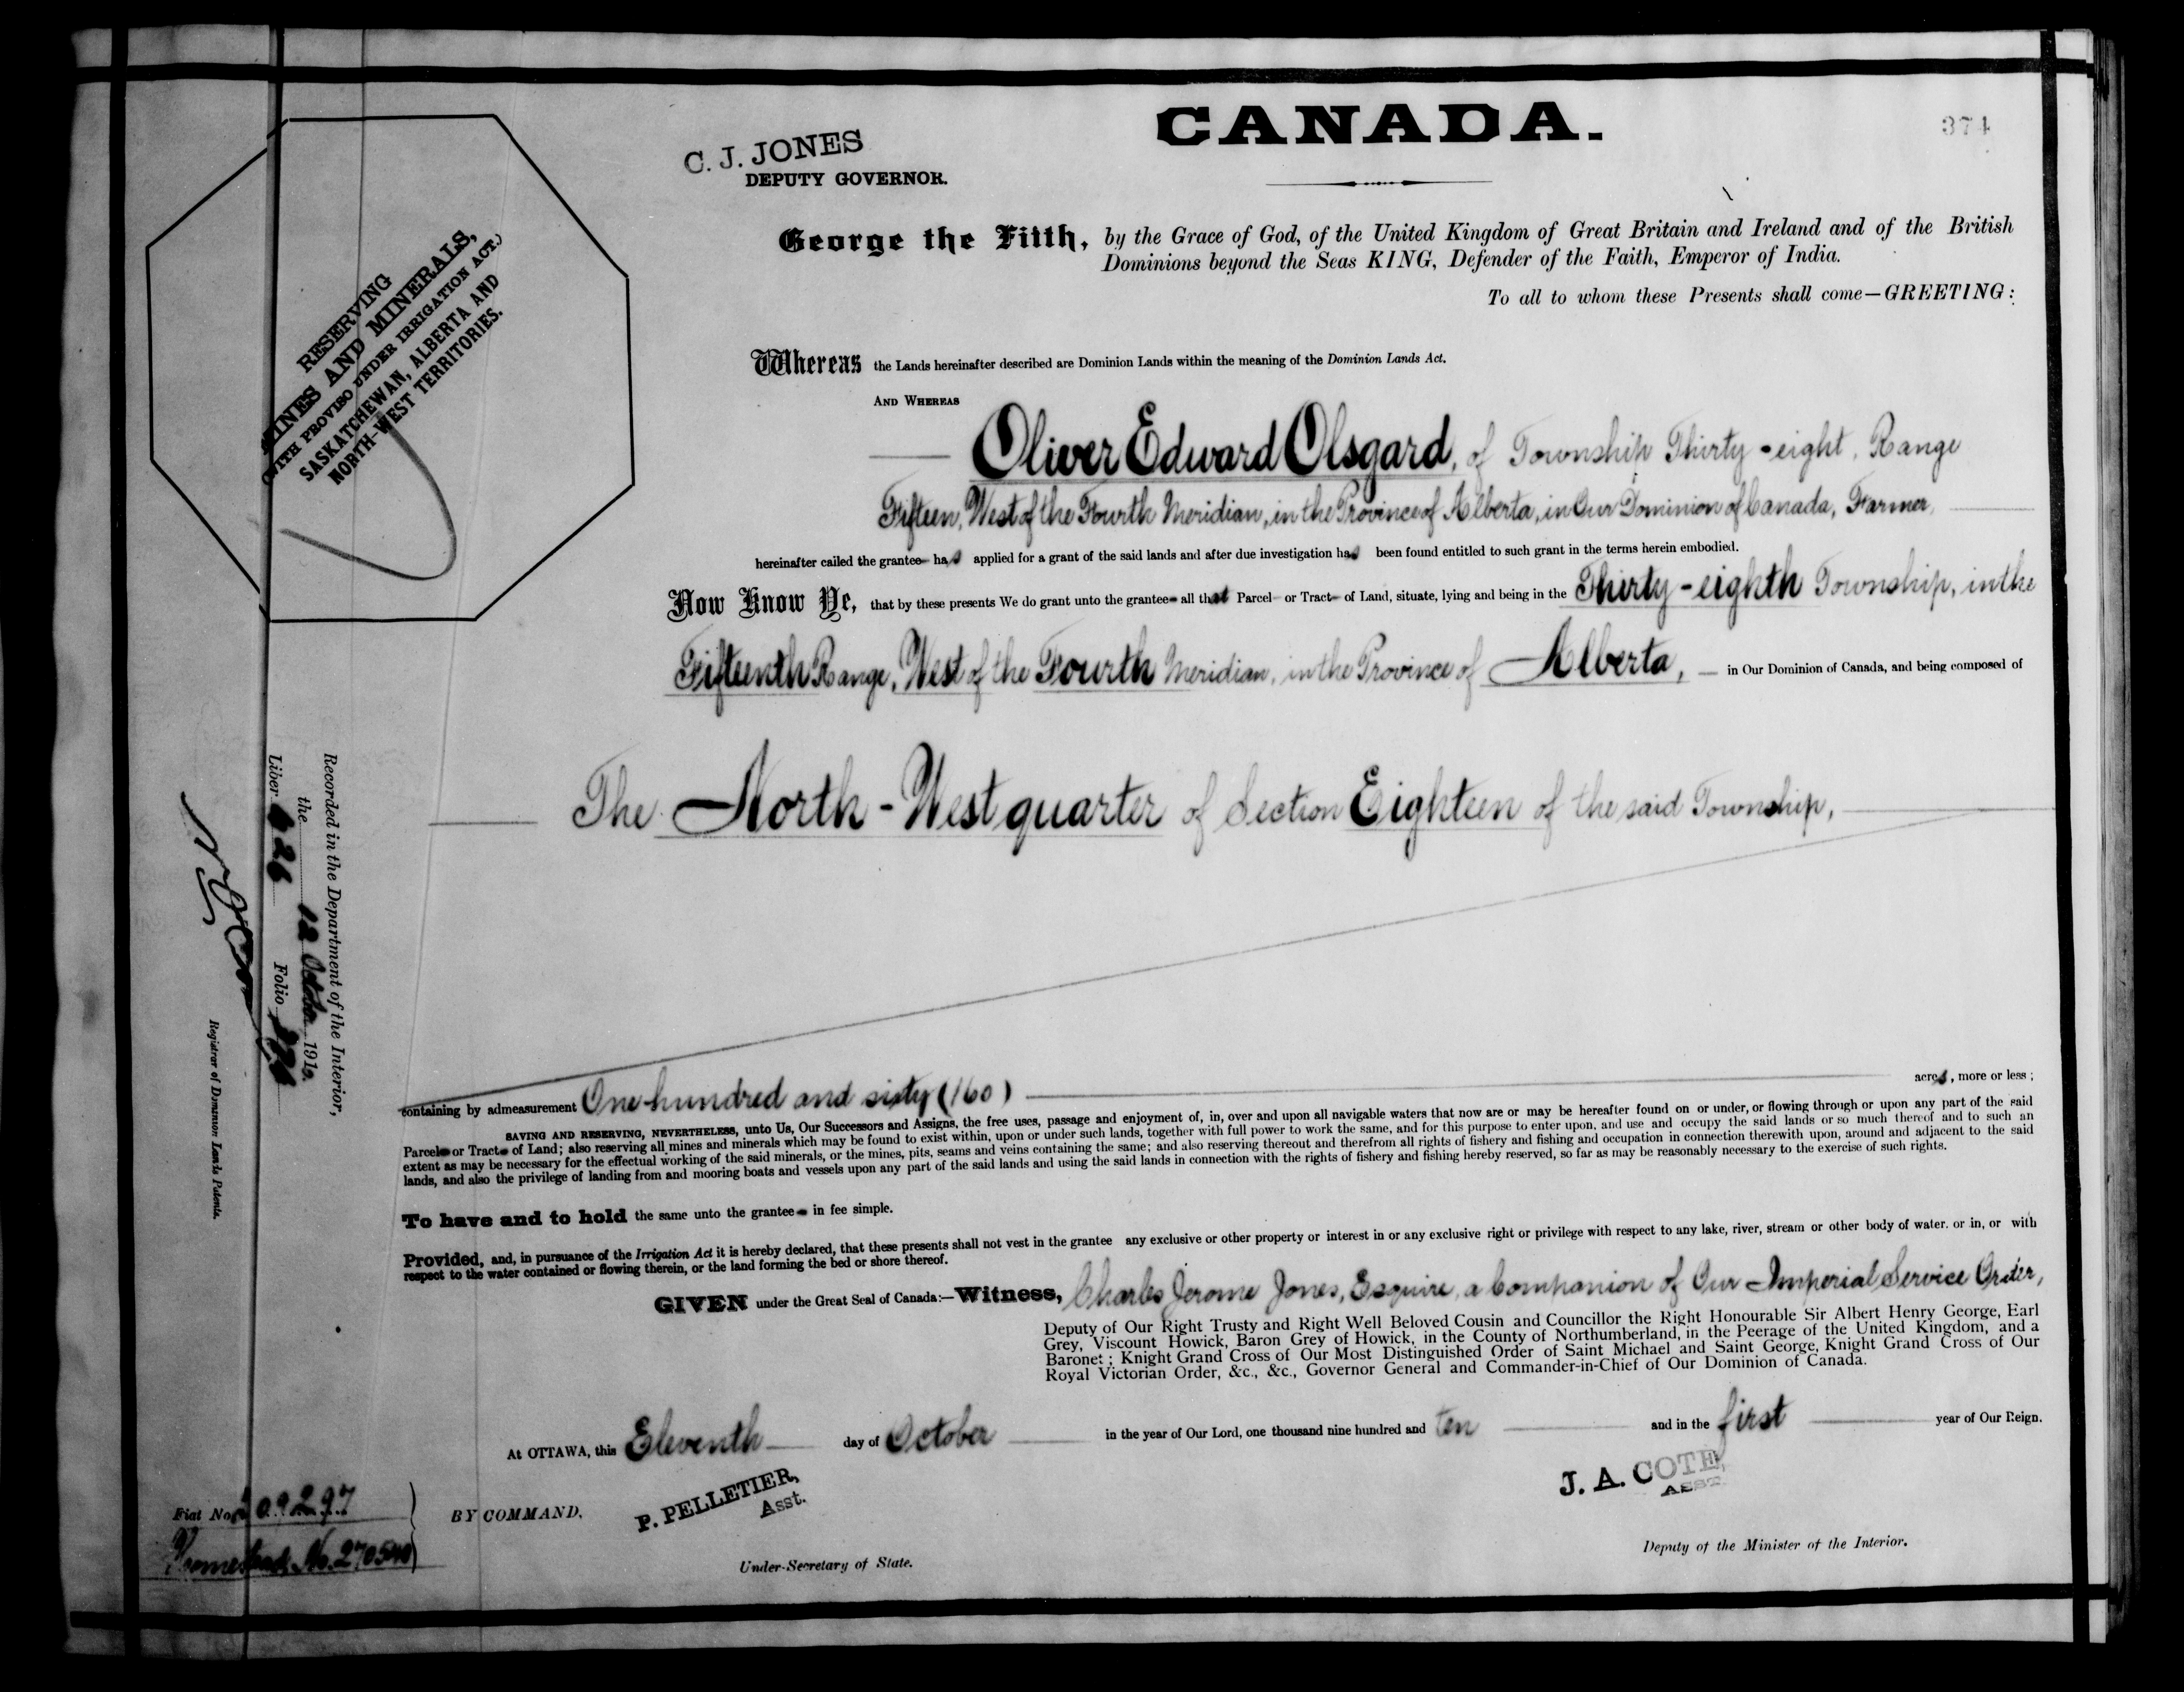 CANADA.
374
C. J. JONES
DEPUTY GOVERNOR.
George the Fifth, by the Grace of God, of the United Kingdom of Great Britain and Ireland and of the British
Dominions beyond the Seas KING, Defender of the Faith, Emperor of India.
To all to whom these Presents shall come—GREETING:
RESERVING
MINES AND MINERALS,
(WITH PROVISO UNDER IRRIGATION ACT.)
SASKATCHEWAN, ALBERTA AND
NORTH-WEST TERRITORIES.
Whereas the Lands hereinafter described are Dominion Lands within the meaning of the Dominion Lands Act.
AND WHEREAS
Oliver Edward Olsgard, of Township Thirty-eight, Range
Fifteen, West of the Fourth Meridian, in the Province of Alberta, in Our Dominion of Canada, Farmer,
hereinafter called the grantee has applied for a grant of the said lands and after due investigation has been found entitled to such grant in the terms herein embodied.
Now Know Ye, that by these presents We do grant unto the grantee all that Parcel or Tract of Land, situate, lying and being in the Thirty-eighth Township, in the
Fifteenth Range, West of the Fourth Meridian, in the Province of Alberta, in Our Dominion of Canada, and being composed of
The North-West quarter of Section Eighteen of the said Township,
Recorded in the Department of the Interior,
the 12 October 1910.
Liber 426 Folio 374
Registrar of Dominion Lands Patents.
containing by admeasurement One hundred and sixty (160) acres, more or less;
SAVING AND RESERVING, NEVERTHELESS, unto Us, Our Successors and Assigns, the free uses, passage and enjoyment of, in, over and upon all navigable waters that now are or may be hereafter found on or under, or flowing through or upon any part of the said
Parcel or Tract of Land; also reserving all mines and minerals which may be found to exist within, upon or under such lands, together with full power to work the same, and for this purpose to enter upon, and use and occupy the said lands or so much thereof and to such an
extent as may be necessary for the effectual working of the said minerals, or the mines, pits, seams and veins containing the same; and also reserving thereout and therefrom all rights of fishery and fishing and occupation in connection therewith upon, around and adjacent to the said
lands, and also the privilege of landing from and mooring boats and vessels upon any part of the said lands and using the said lands in connection with the rights of fishery and fishing hereby reserved, so far as may be reasonably necessary to the exercise of such rights.
To have and to hold the same unto the grantee in fee simple.
Provided, and, in pursuance of the Irrigation Act it is hereby declared, that these presents shall not vest in the grantee any exclusive or other property or interest in or any exclusive right or privilege with respect to any lake, river, stream or other body of water. or in, or with
respect to the water contained or flowing therein, or the land forming the bed or shore thereof.
GIVEN under the Great Seal of Canada:—Witness, Charles Jerome Jones, Esquire, a Companion of Our Imperial Service Order,
Deputy of Our Right Trusty and Right Well Beloved Cousin and Councillor the Right Honourable Sir Albert Henry George, Earl
Grey, Viscount Howick, Baron Grey of Howick, in the County of Northumberland, in the Peerage of the United Kingdom, and a
Baronet; Knight Grand Cross of Our Most Distinguished Order of Saint Michael and Saint George, Knight Grand Cross of Our
Royal Victorian Order, &c., &c., Governor General and Commander-in-Chief of Our Dominion of Canada.
At OTTAWA, this Eleventh day of October in the year of Our Lord, one thousand nine hundred and ten and in the first year of Our Reign.
Fiat No. 209297
Homestead No. 270540
BY COMMAND,
P. PELLETIER,
Asst.
Under-Secretary of State.
J. A. COTE,
ASST.
Deputy of the Minister of the Interior.